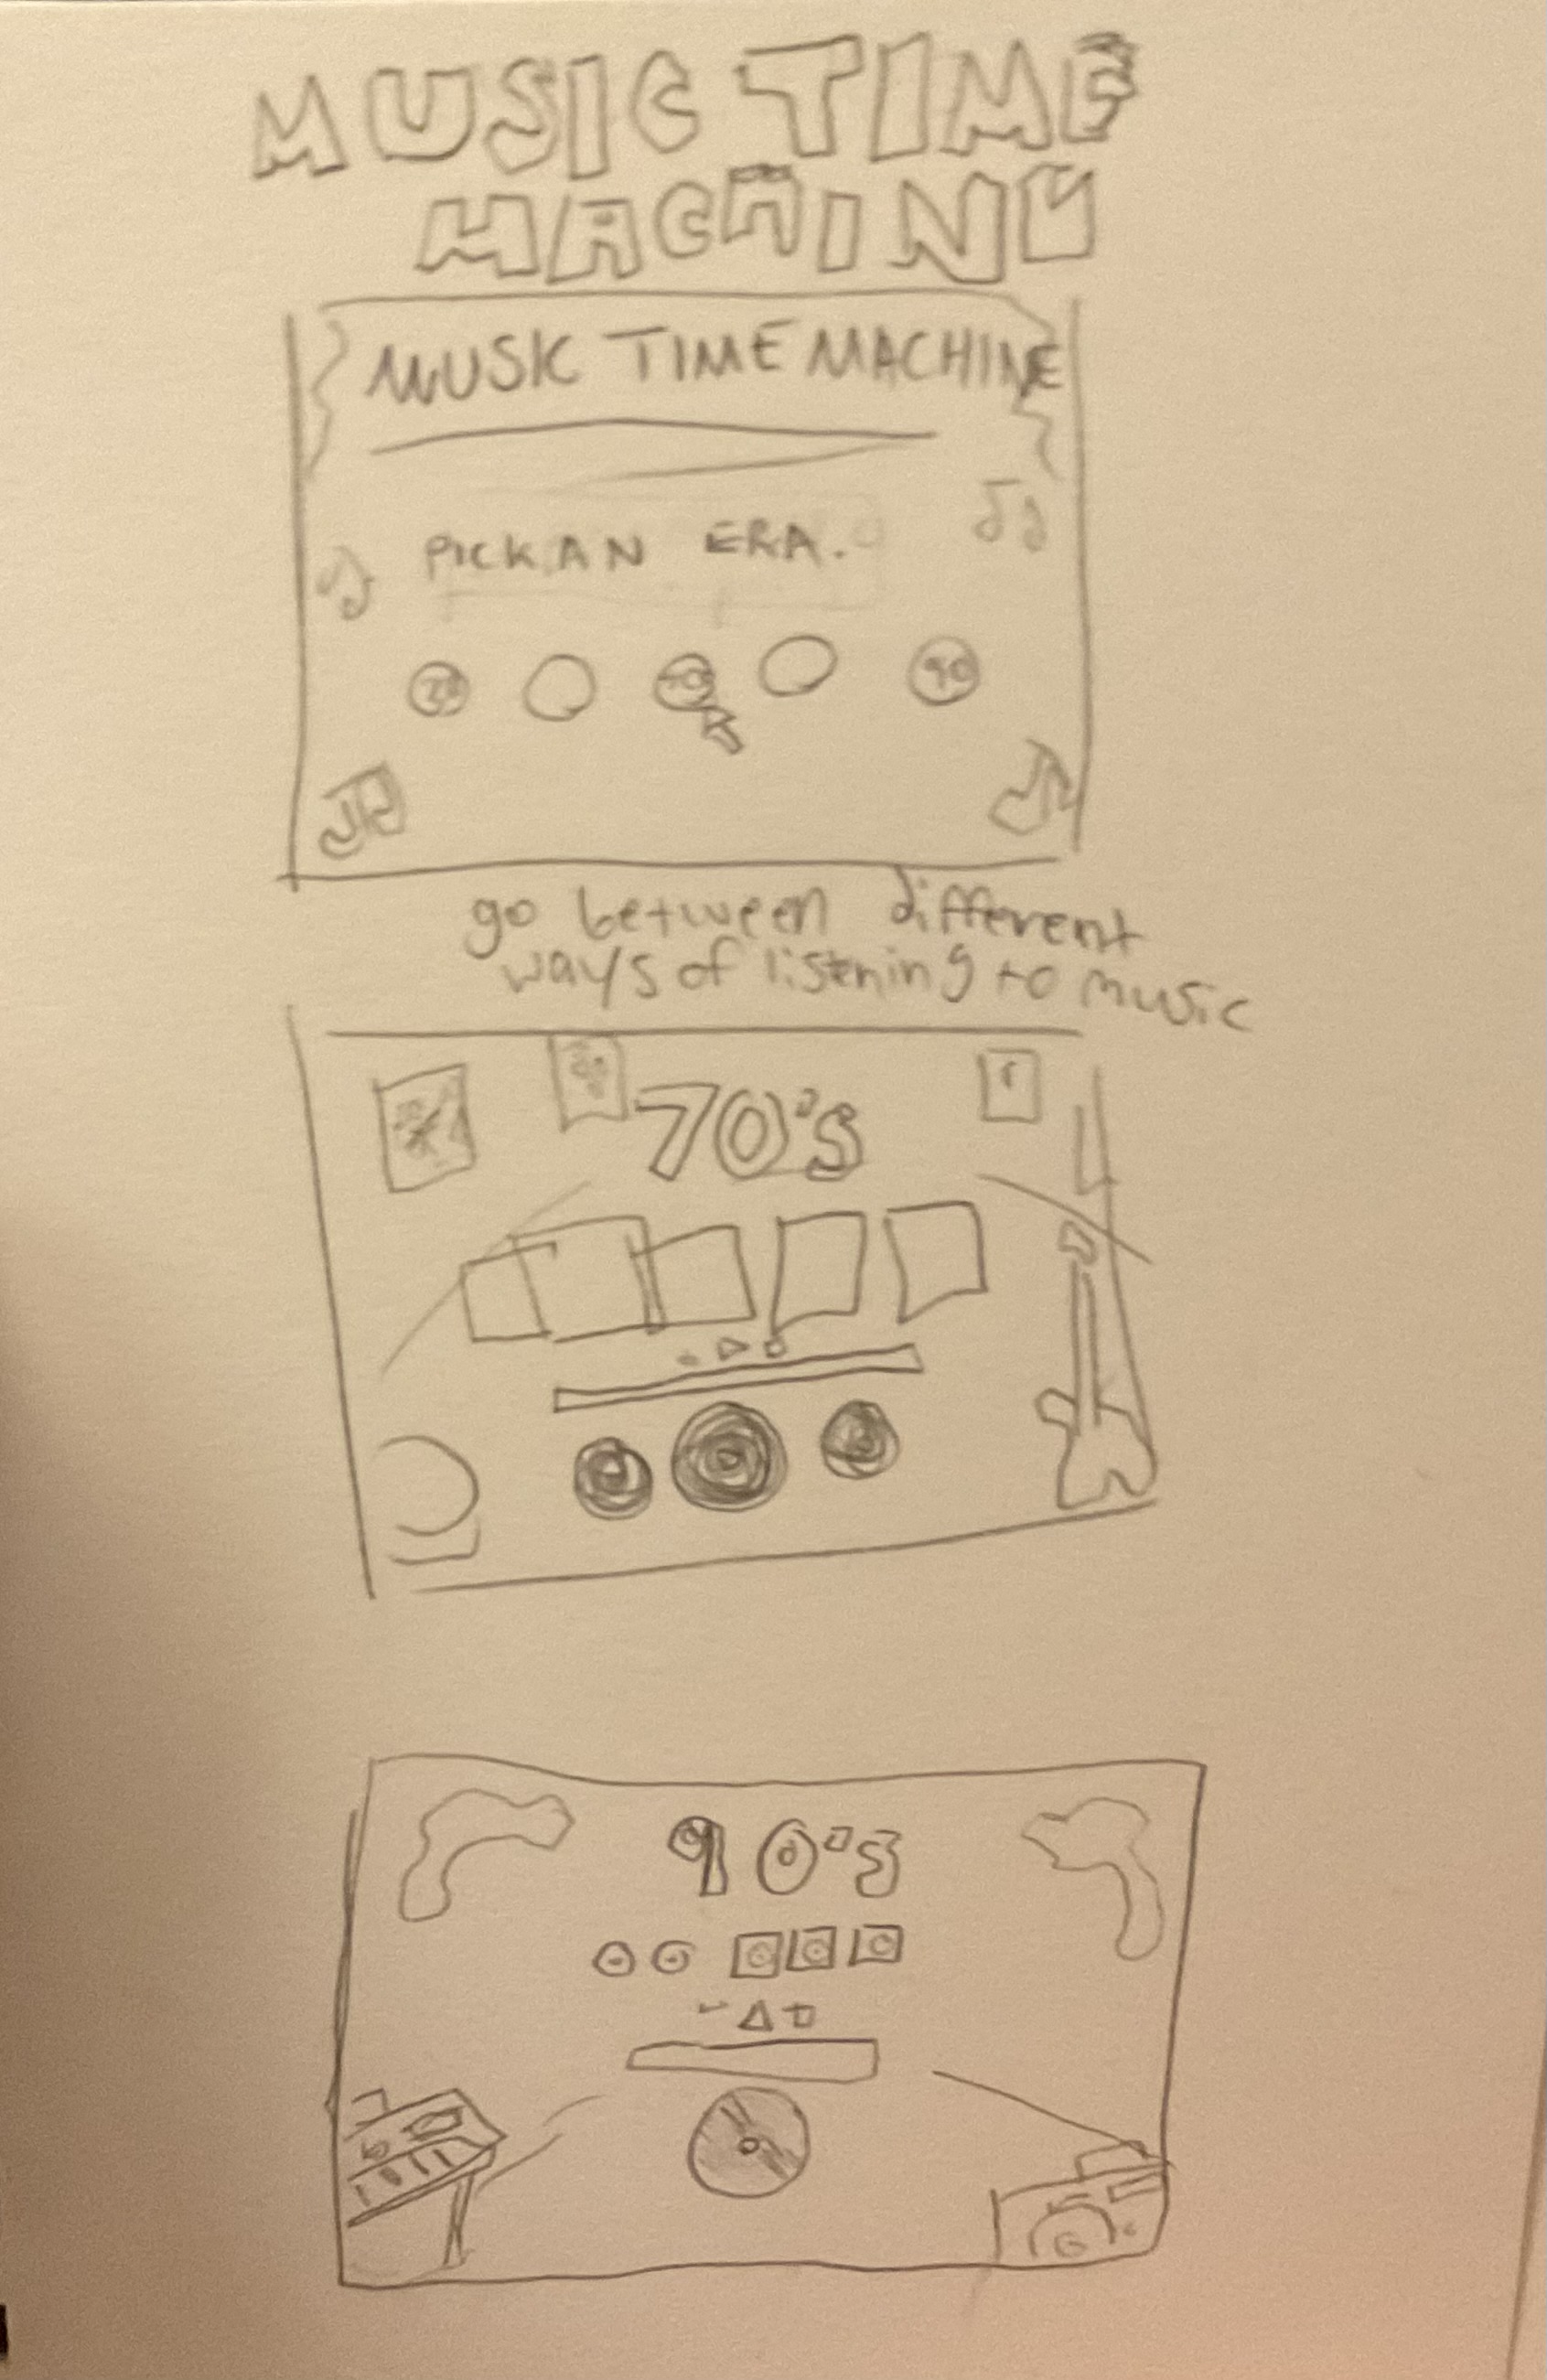 MUSIC TIME
MACHINE
MUSIC TIME MACHINE
PICK AN ERA.
90
go between different
ways of listening to music
70's
90's